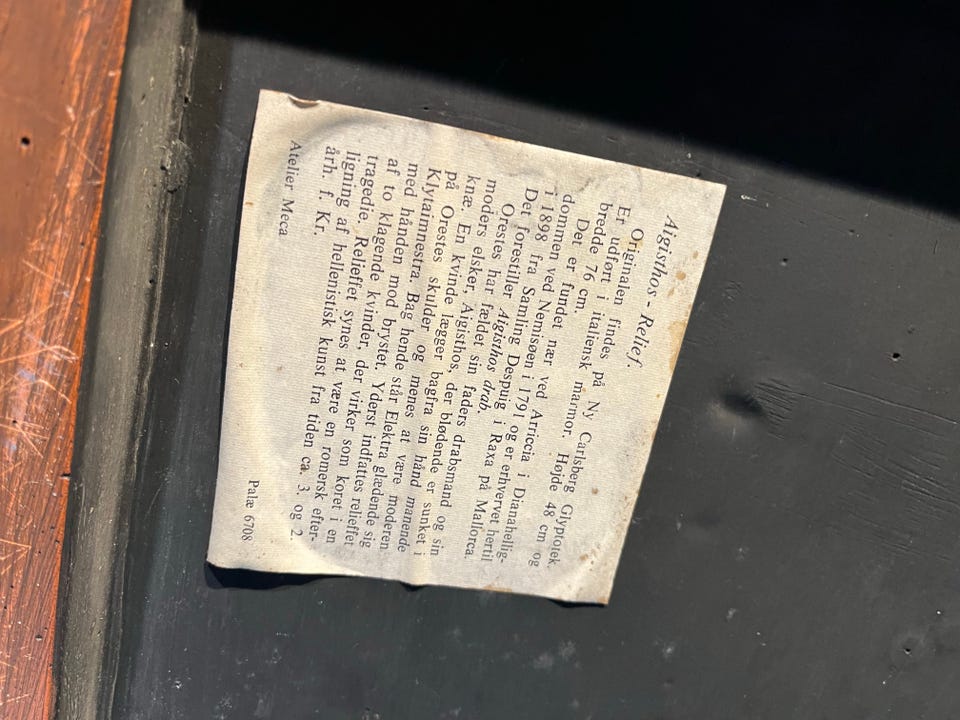 Aigisthos - Relief.
Originalen findes på Ny Carlsberg Glyptotek.
Er udført i italiensk marmor. Højde 48 cm og
bredde 76 cm.
Det er fundet nær ved Arriccia i Dianahellig-
dommen ved Nemisøen i 1791 og er erhvervet hertil
i 1898 fra Samling Despuig i Raxa på Mallorca.
Det forestiller Aigisthos drab.
Orestes har fældet sin faders drabsmand og sin
moders elsker, Aigisthos, der blødende er sunket i
knæ. En kvinde lægger bagfra sin hånd manende
på Orestes skulder og menes at være moderen
Klytaimnestra. Bag hende står Elektra glædende sig
med hånden mod brystet. Yderst indfattes relieffet
af to klagende kvinder, der virker som koret i en
tragedie. Relieffet synes at være en romersk efter-
ligning af hellenistisk kunst fra tiden ca. 3. og 2.
årh. f. Kr.
Atelier Meca
Palæ 6708